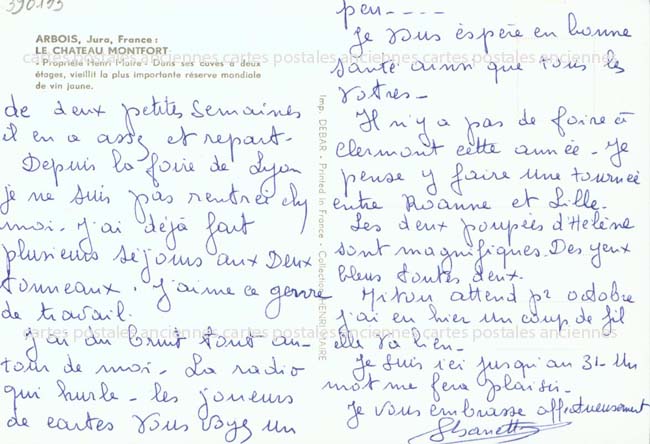 390193
ARBOIS, Jura, France :
LE CHATEAU MONTFORT
« Propriété Henri Maire » Dans ses caves à deux
étages, vieillit la plus importante réserve mondiale
de vin jaune.
de deux petites semaines
il en a assez et repart.
Depuis la foire de Lyon
je ne suis pas rentrée chez
moi. J'ai déjà fait
plusieurs séjours aux Deux
tonneaux. J'aime ce genre
de travail.
J'ai du bruit tout au-
tour de moi. La radio
qui hurle. les joueurs
de cartes vous voyez un
Imp. DEBAR - Printed in France - Collection HENRI MAIRE
peu----
Je vous espère en bonne
santé ainsi que tous les
vôtres.
Il n'y a pas de foire à
Clermont cette année. Je
pense y faire une tournée
entre Roanne et Lille.
Les deux poupées d'Hélène
sont magnifiques. Des yeux
bleus toutes deux.
attend pr octobre
j'ai eu hier un coup de fil
elle va bien.
Je suis ici jusqu'au 31. Un
mot me fera plaisir.
Je vous embrasse affectueusement
cartes postales anciennes cartes postales anciennes cartes postales anciennes
cartes postales anciennes cartes postales anciennes cartes postales anciennes